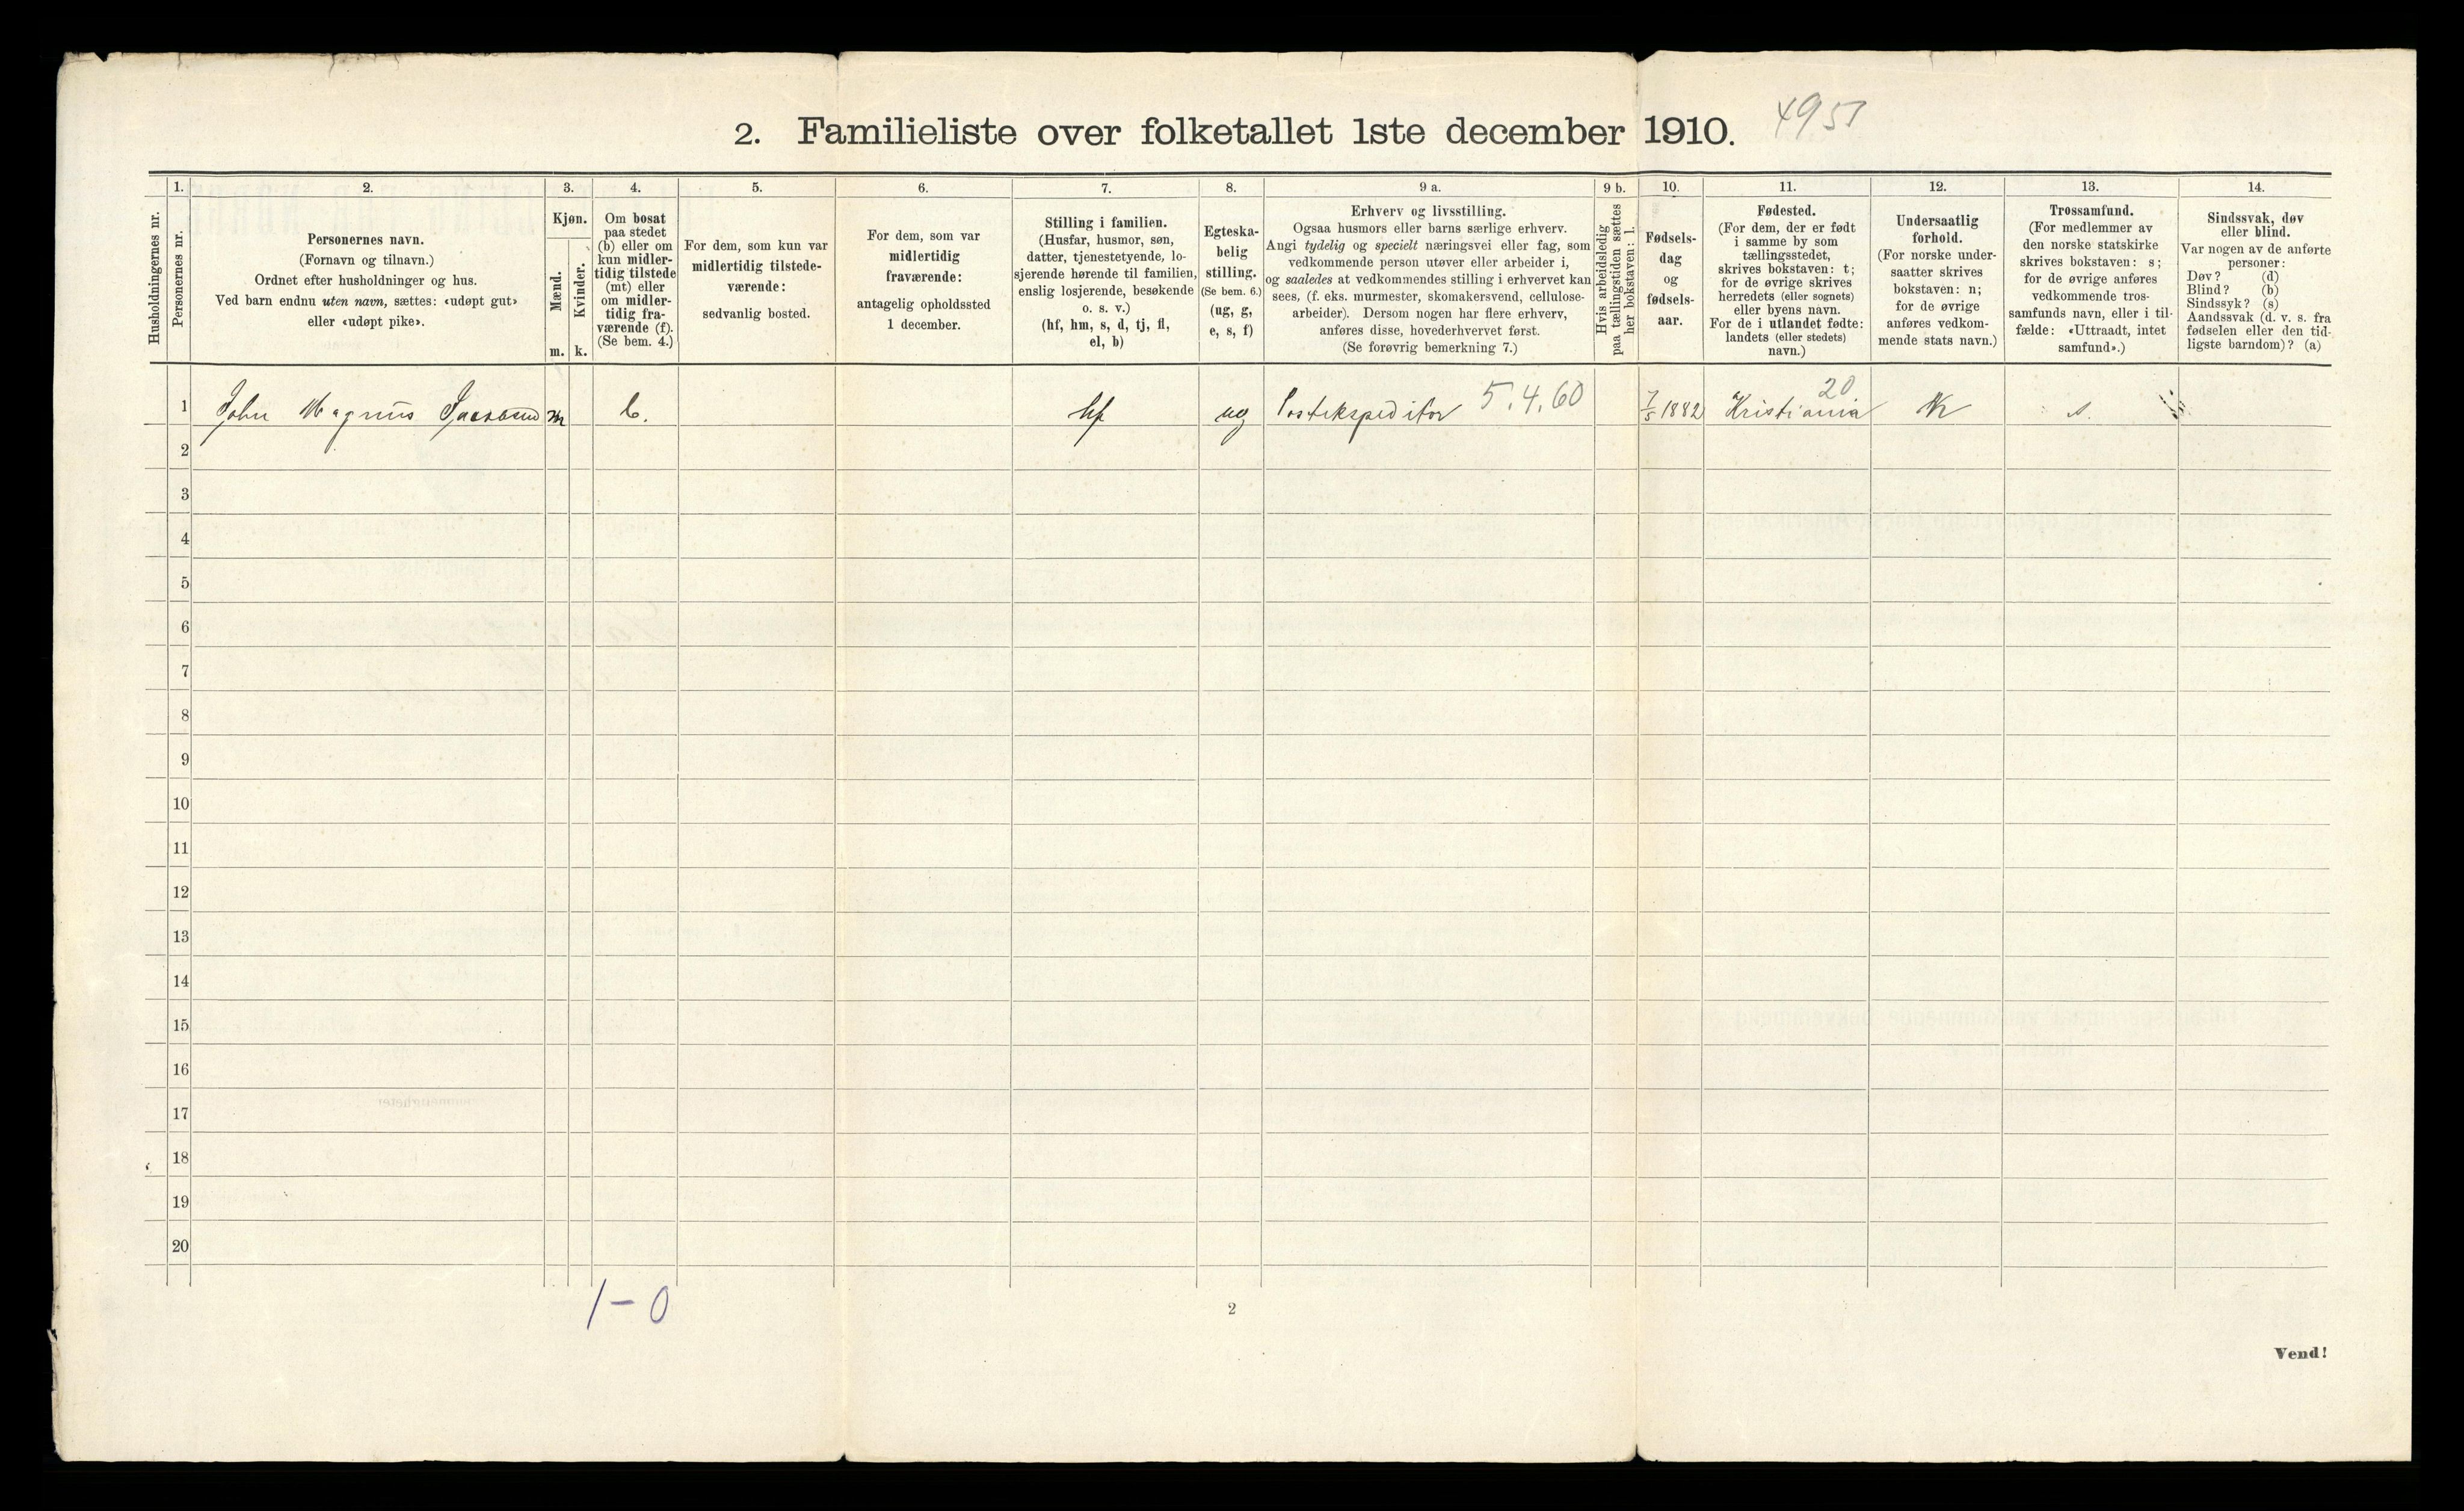 2. Familieliste over folketallet 1ste december 1910.
4951
Husholdningernes nr.
1.
Personernes nr.
2.
Personernes navn.
(Fornavn og tilnavn.)
Ordnet efter husholdninger og hus.
Ved barn endnu uten navn, sættes: «udøpt gut»
eller «udøpt pike».
3.
Kjøn.
Mænd.
Kvinder.
m. k.
4.
Om bosat
paa stedet
(b) eller om
kun midler-
tidig tilstede
(mt) eller
om midler-
tidig fra-
værende (f).
(Se bem. 4.)
5.
For dem, som kun var
midlertidig tilstede-
værende:
sedvanlig bosted.
6.
For dem, som var
midlertidig
fraværende:
antagelig opholdssted
1 december.
7.
Stilling i familien.
(Husfar, husmor, søn,
datter, tjenestetyende, lo-
sjerende hørende til familien,
enslig losjerende, besøkende
o. s. v.)
(hf, hm, s, d, tj, fl,
el, b)
8.
Egteska-
belig
stilling.
(Se bem. 6.)
(ug, g,
e, s, f)
9 a.
Erhverv og livsstilling.
Ogsaa husmors eller barns særlige erhverv.
Angi tydelig og specielt næringsvei eller fag, som
vedkommende person utøver eller arbeider i,
og saaledes at vedkommendes stilling i erhvervet kan
sees, (f. eks. murmester, skomakersvend, cellulose-
arbeider). Dersom nogen har flere erhverv,
anføres disse, hovederhvervet først.
(Se forøvrig bemerkning 7.)
9 b.
Hvis arbeidsledig
paa tællingstiden sættes
her bokstaven: l.
10.
Fødsels-
dag
og
fødsels-
aar.
11.
Fødested.
(For dem, der er født
i samme by som
tællingsstedet,
skrives bokstaven: t;
for de øvrige skrives
herredets (eller sognets)
eller byens navn.
For de i utlandet fødte:
landets (eller stedets)
navn.)
12.
Undersaatlig
forhold.
(For norske under-
saatter skrives
bokstaven: n;
for de øvrige
anføres vedkom-
mende stats navn.)
13.
Trossamfund.
(For medlemmer av
den norske statskirke
skrives bokstaven: s;
for de øvrige anføres
vedkommende tros-
samfunds navn, eller i til-
fælde: «Uttraadt, intet
samfund».)
14.
Sindssvak, døv
eller blind.
Var nogen av de anførte
personer:
Døv? (d)
Blind? (b)
Sindssyk? (s)
Aandssvak (d. v. s. fra
fødselen eller den tid-
ligste barndom)? (a)
1 John Magnus m b. hf ug Postekspeditør 5.4.60 7/5 1882 Kristiania 20 N s.
2
3
4
5
6
7
8
9
10
11
12
13
14
15
16
17
18
19
20
1 - 0
2
Vend!